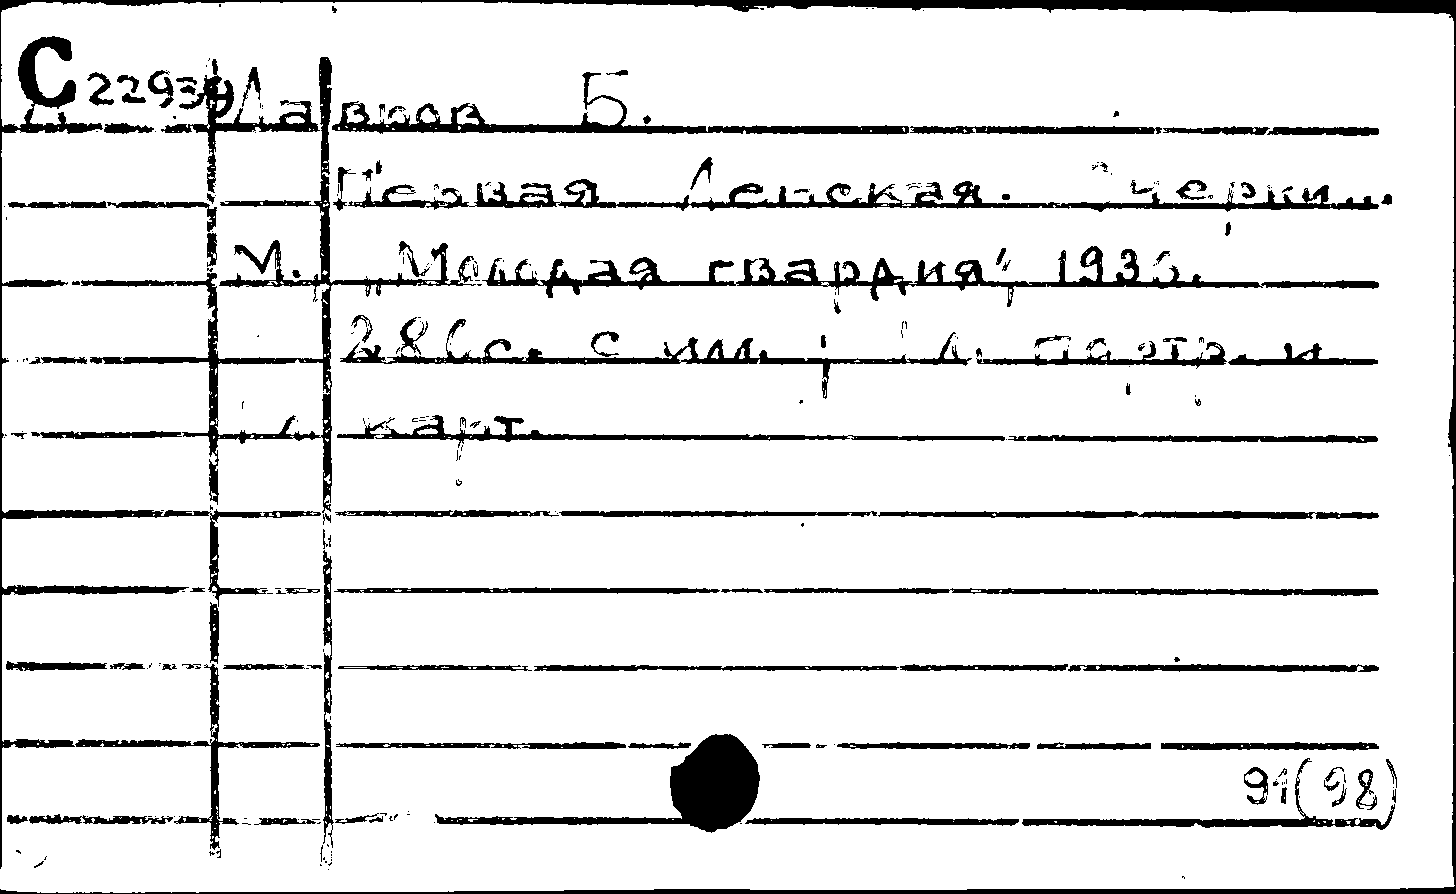 С 22939 Лавров Б.
Первая Ленская. Очерки...
М., „Молодая гвардия“, 1936.
286с. с илл.; 1 л. портр. и
1 л. карт.
91(98)